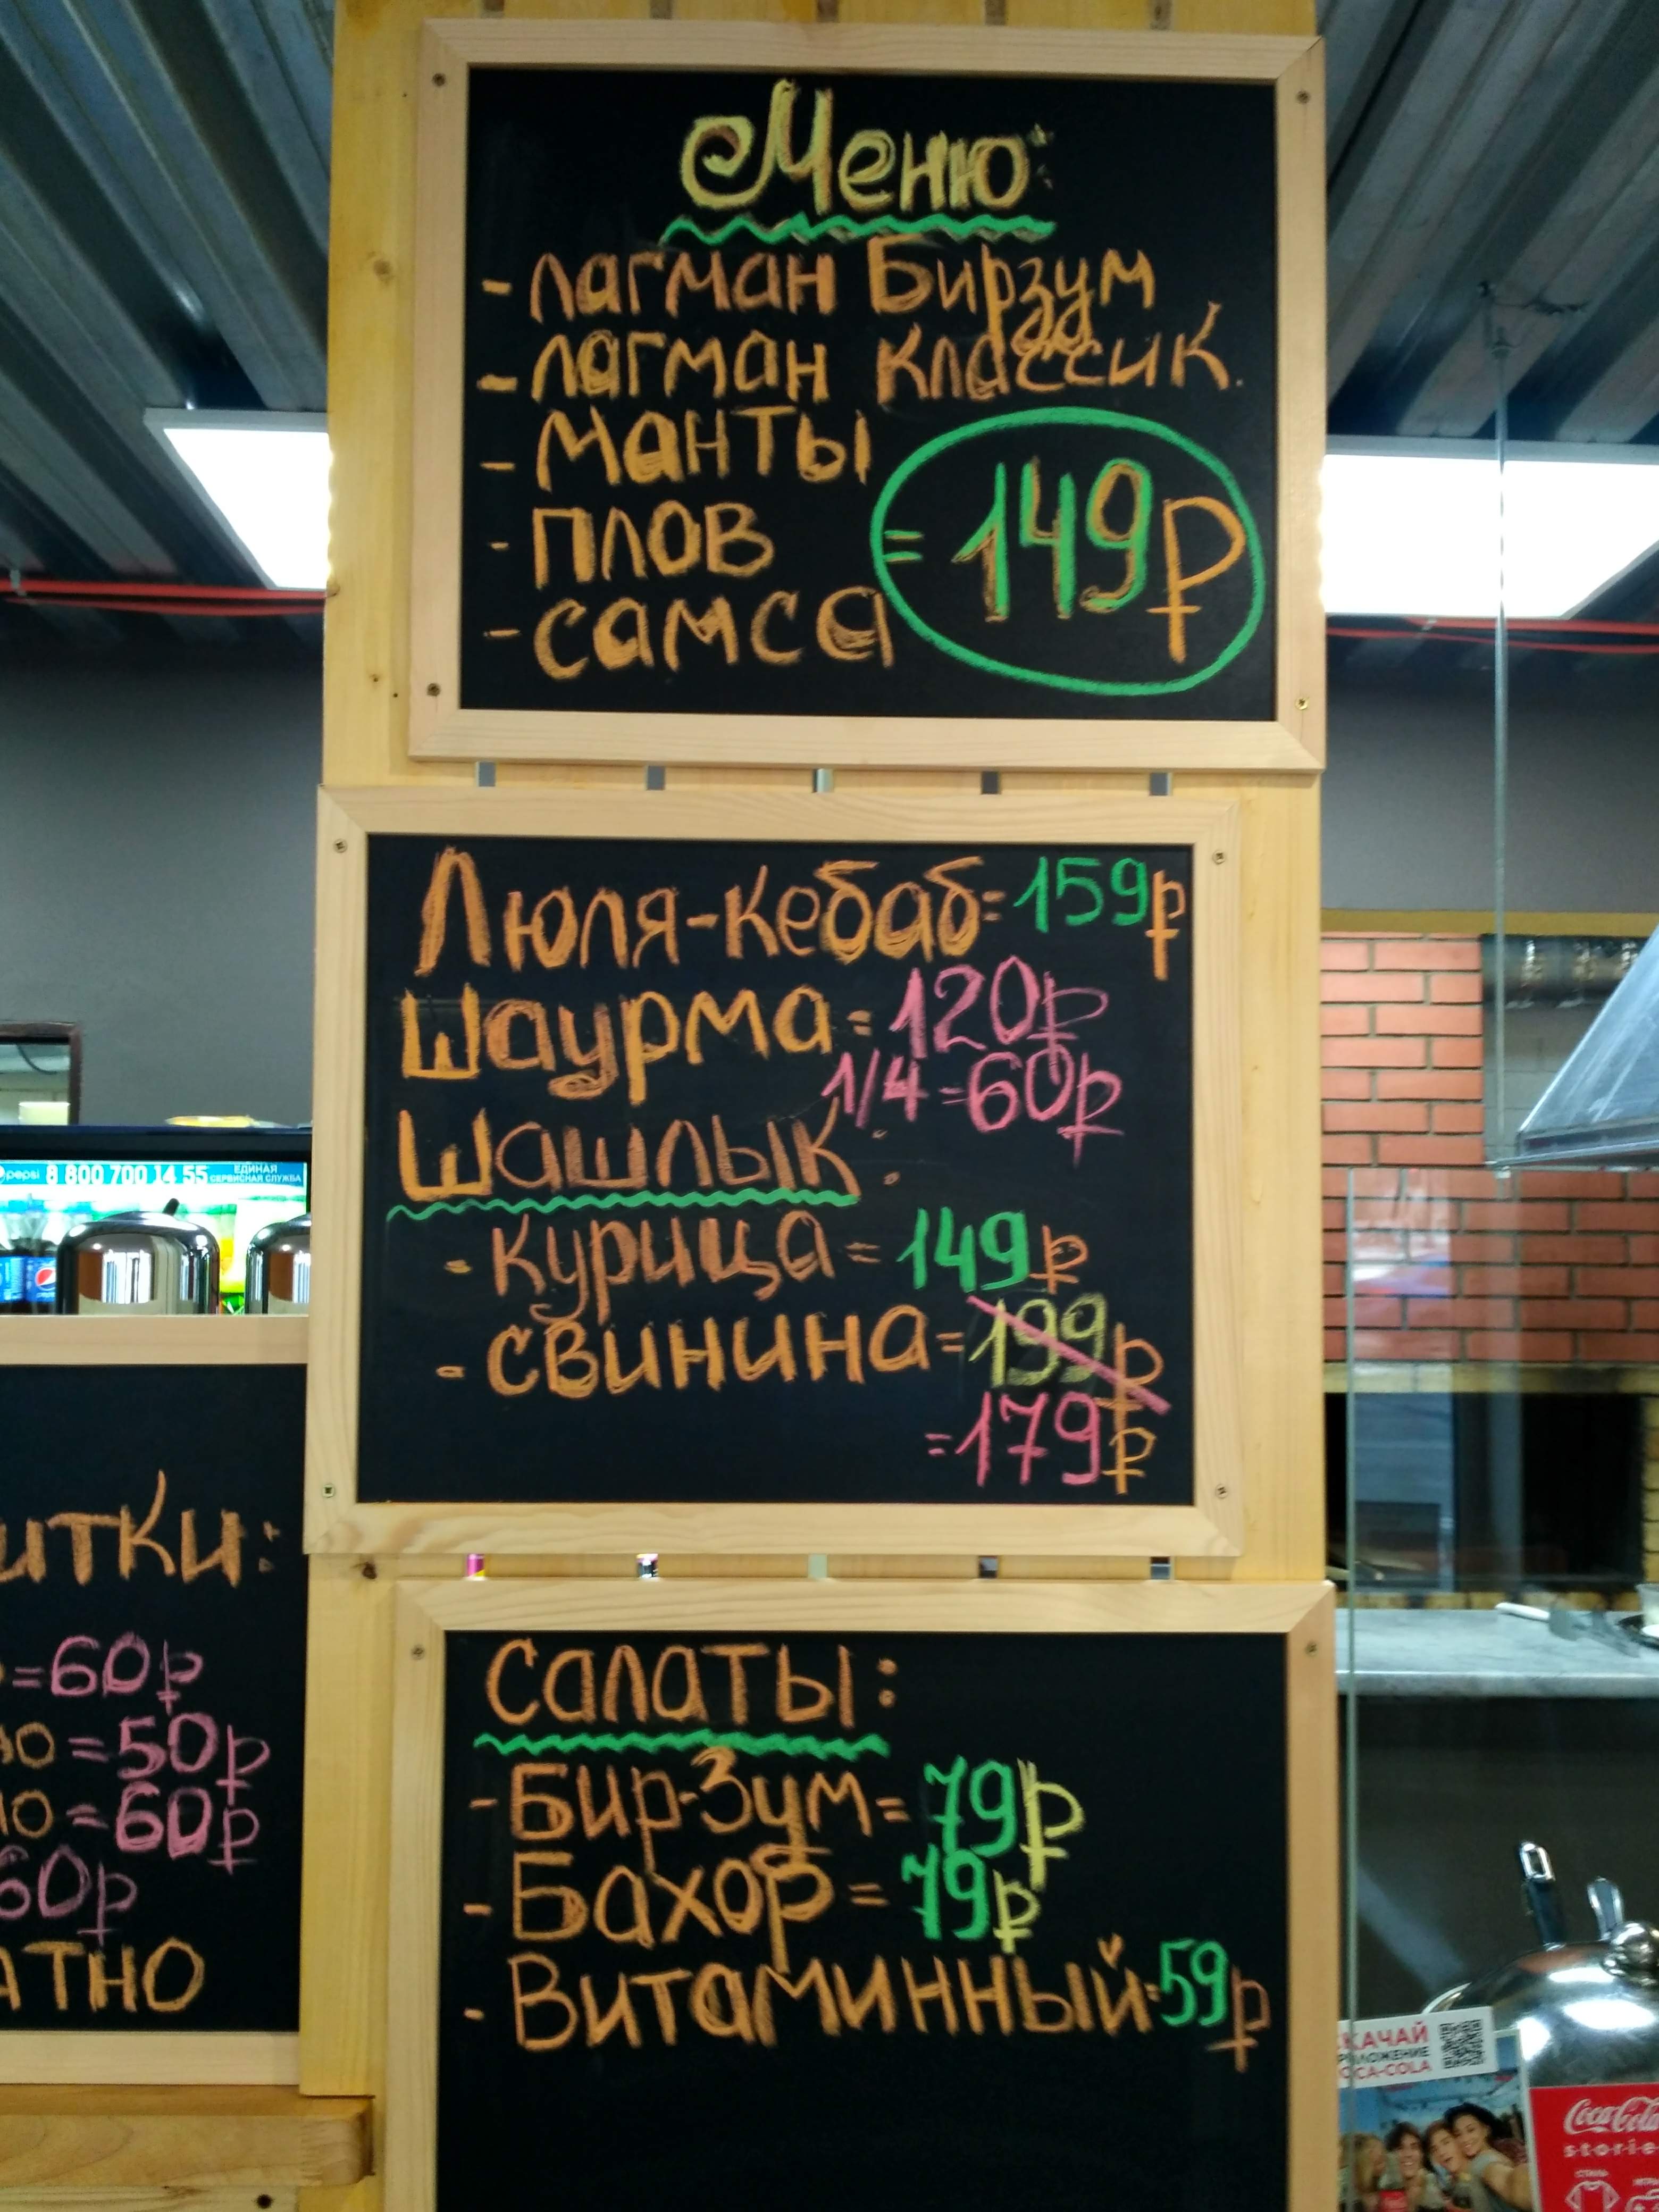 Меню:
- лагман Бирзум
- лагман классик.
- манты
- плов
- самса
= 149₽
Люля-кебаб = 159₽
Шаурма = 120₽
1/4 = 60₽
Шашлык :
- курица = 149₽
- свинина = 199₽
= 179₽
Салаты:
- Бир-Зум = 79₽
- Бахор = 79₽
- Витаминный = 59₽
итки:
=60₽
=50₽
=60₽
60₽
АТНО
pepsi 8 800 700 14 55 ЕДИНАЯ
СЕРВИСНАЯ СЛУЖБА
КАЧАЙ
ЛОЖЕНИЕ
OCA-COLA
Coca-Cola
storie